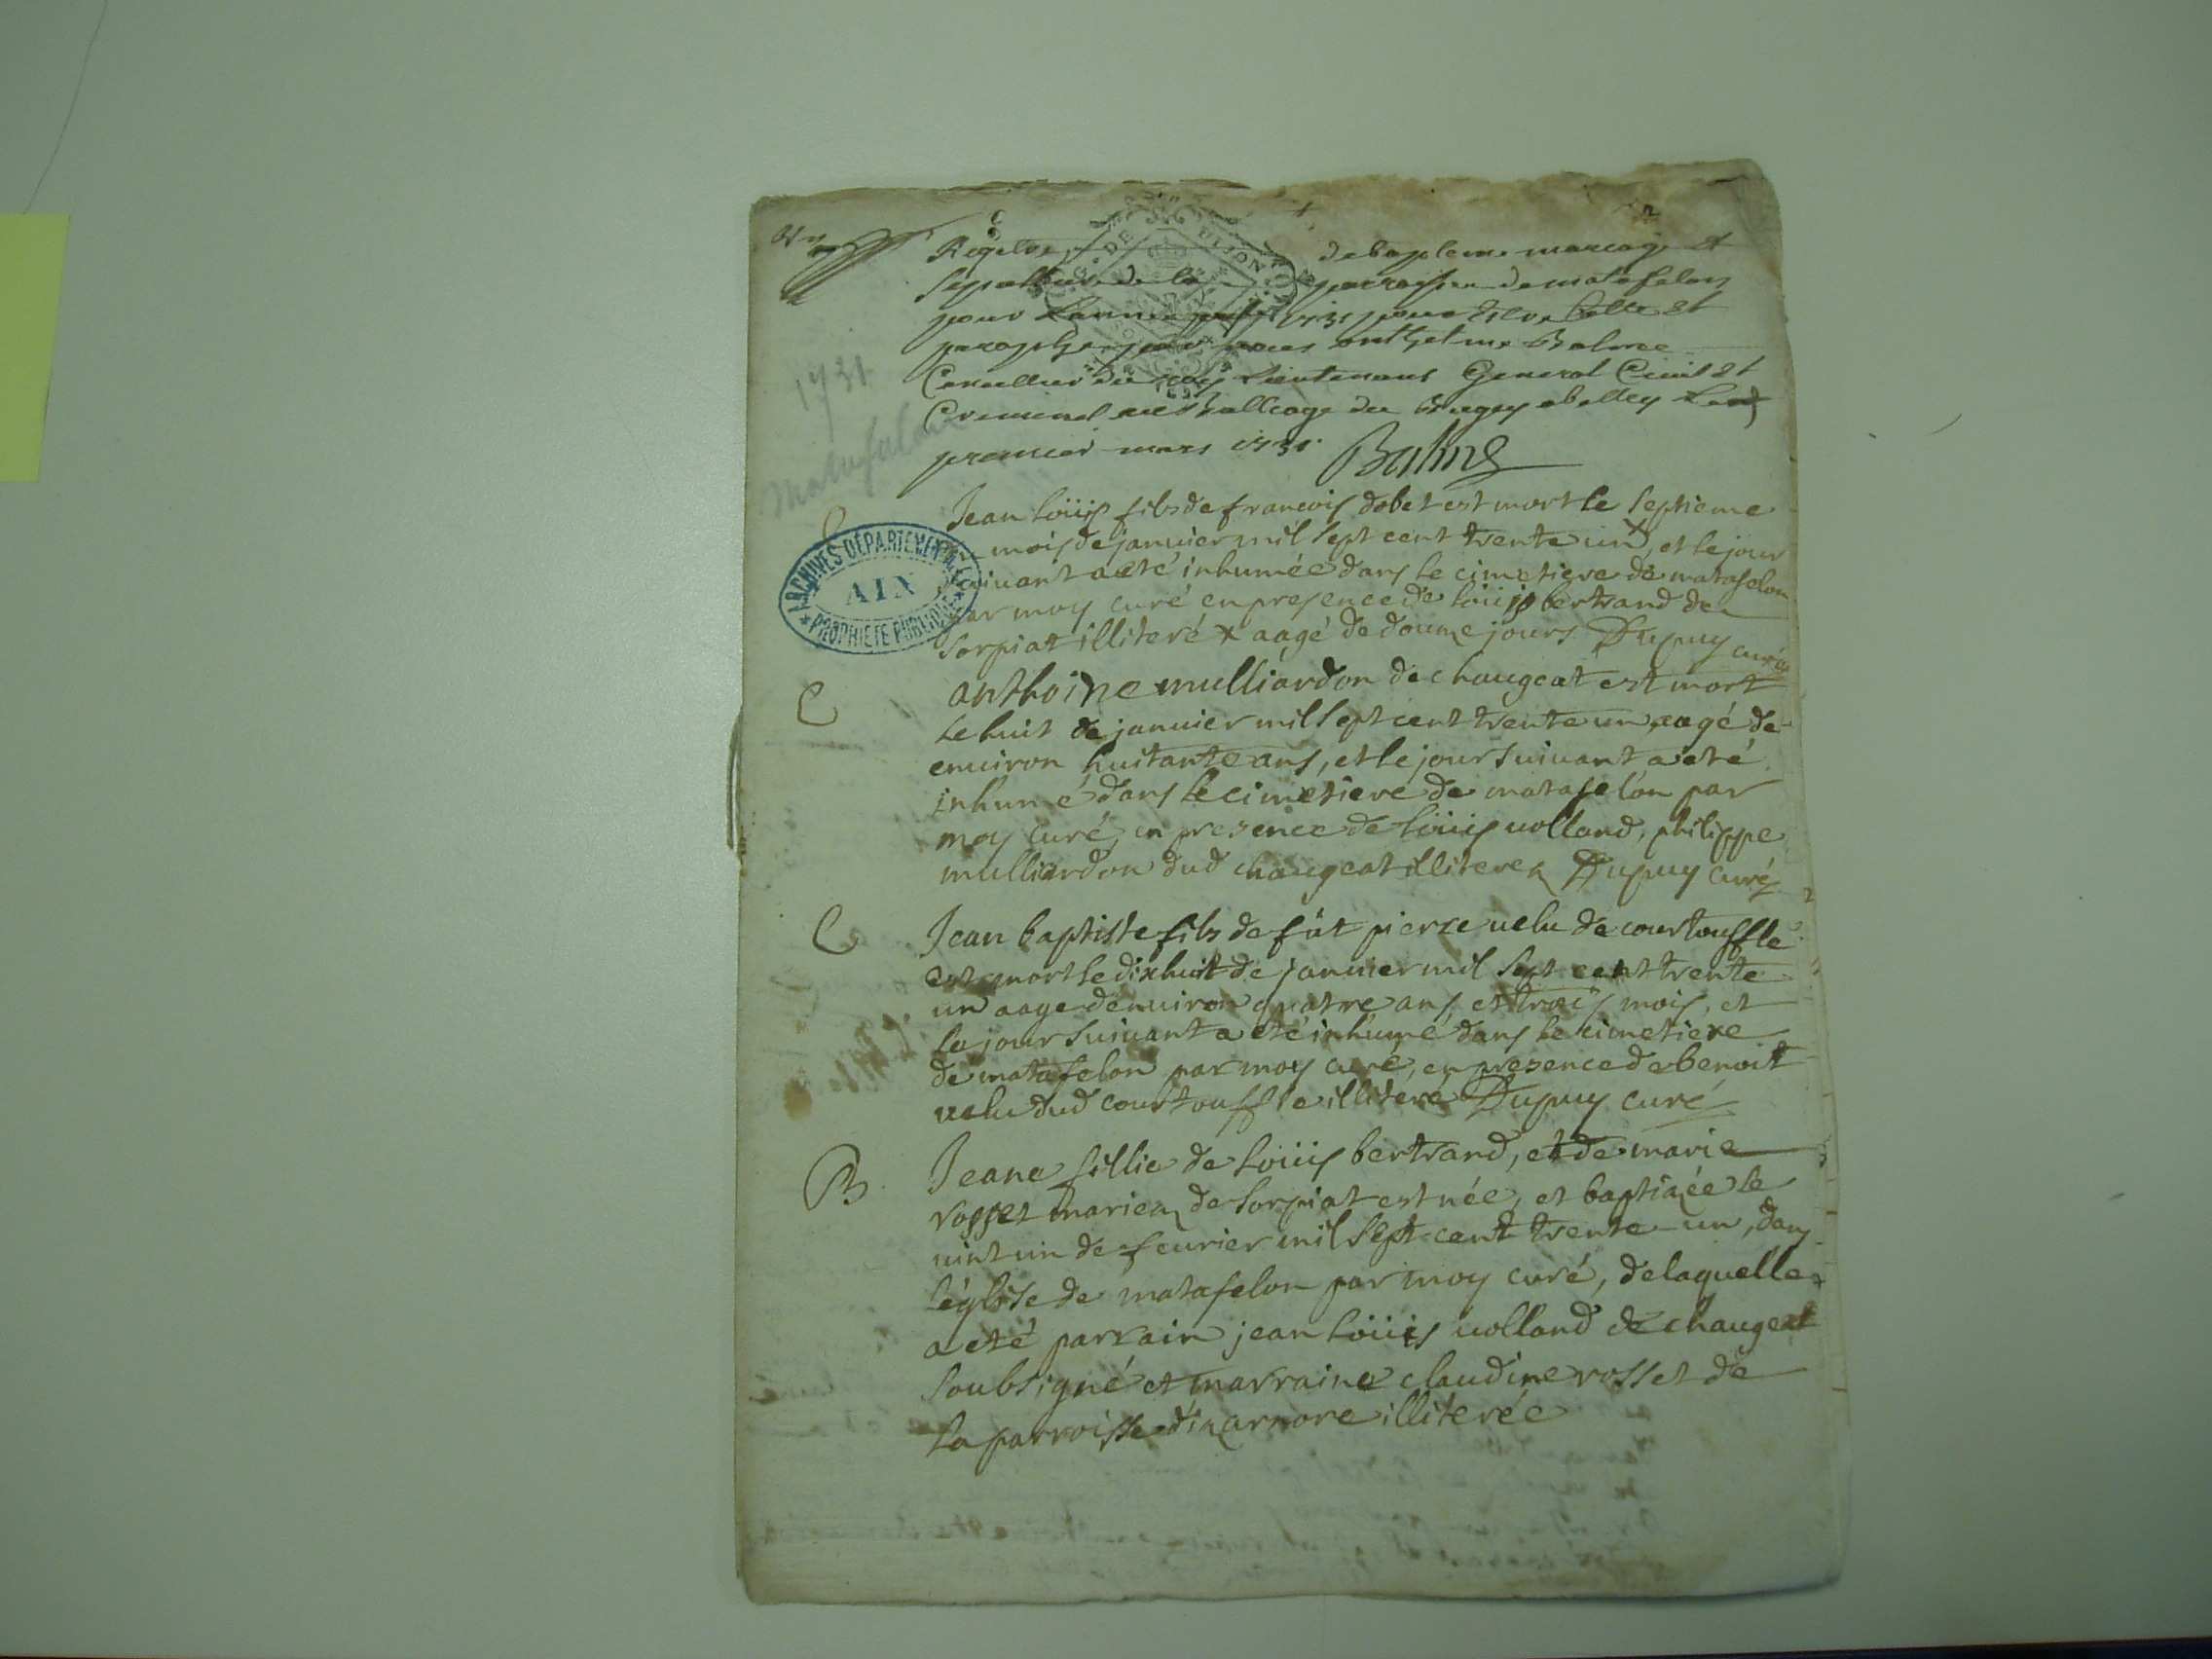 Registre de bapteme mariage et
sepulture de la parroisse de matafelon
pour l'année 1731 pour estre Cotté et
paraphé par nous anthelme Balme
Conseiller du roy Lieutenant General Civil et
Criminel au Balliage du Bugey a belley
premier mars 1731 Balme
1731
matafelon
ARCHIVES DÉPARTEMENTALES
AIN
PROPRIÉTÉ PUBLIQUE
Jean loüis fils de francois dobet est mort le septieme
mois de janvier mil sept cent trente un x, et le jour
suivant a eté inhumée dans le cimetiere de matafelon
par moy curé en presence de loüis bertrand de
sorpiat illiteré x aagé de douze jours Dupuy curé
C anthoine mulliardon de chaugeat est mort
le huit de janvier mil sept cent trente un aagé de
environ huitante ans, et le jour suivant a eté
inhumé dans le cimetiere de matafelon par
moy curé, en presence de loüis volland, philippe
mulliardon dud chaugeat illiterez Dupuy curé
C Jean baptiste fils de fût pierre velu de courtouffle
est mort le dixhuit de janvier mil sept cent trente
un aage d'environ quatre ans, et trois mois, et
le jour suivant a eté inhumé dans le cimetiere
de matafelon par moy curé, en presence de benoit
velu dud courtouffle illiteré Dupuy curé
B Jeane fillie de loüis bertrand, et de marie
rosset mariez de sorpiat est née, et baptizée le
vint un de fevrier mil sept cent trente un, dans
l'église de matafelon par moy curé, de laquelle
a eté parrain jean loüis volland de chaugeat
soubsigné et marraine claudine rosset de
la parroisse d'izarnore illiterée